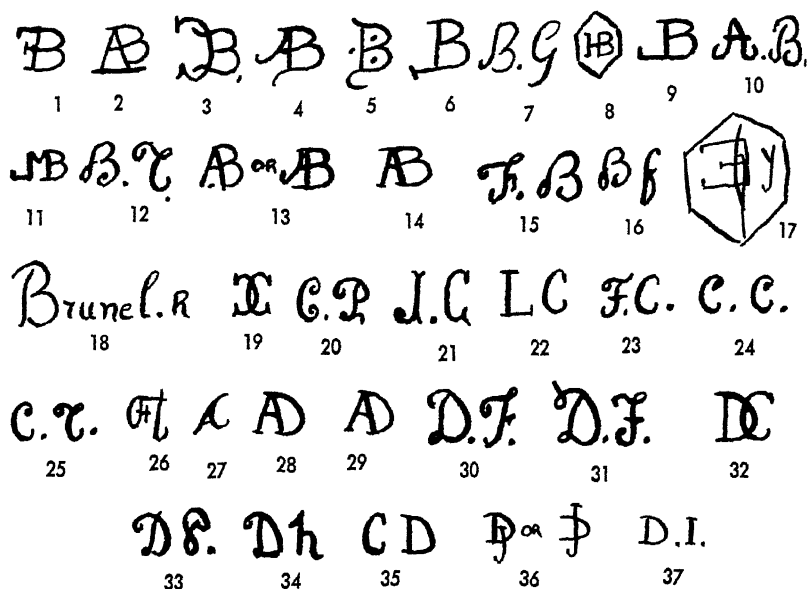 FB AB JB. AB B B B.G HB B A.B.
1 2 3 4 5 6 7 8 9 10
MB B.T. AB OR AB AB F.B B f y
11 12 13 14 15 16 17
Brunel.R C C.P. J.C LC F.C. C.C.
18 19 20 21 22 23 24
C.T. AC AD AD D.F. D.F. DC
25 26 27 28 29 30 31 32
D P. D h C D OR D.I.
33 34 35 36 37